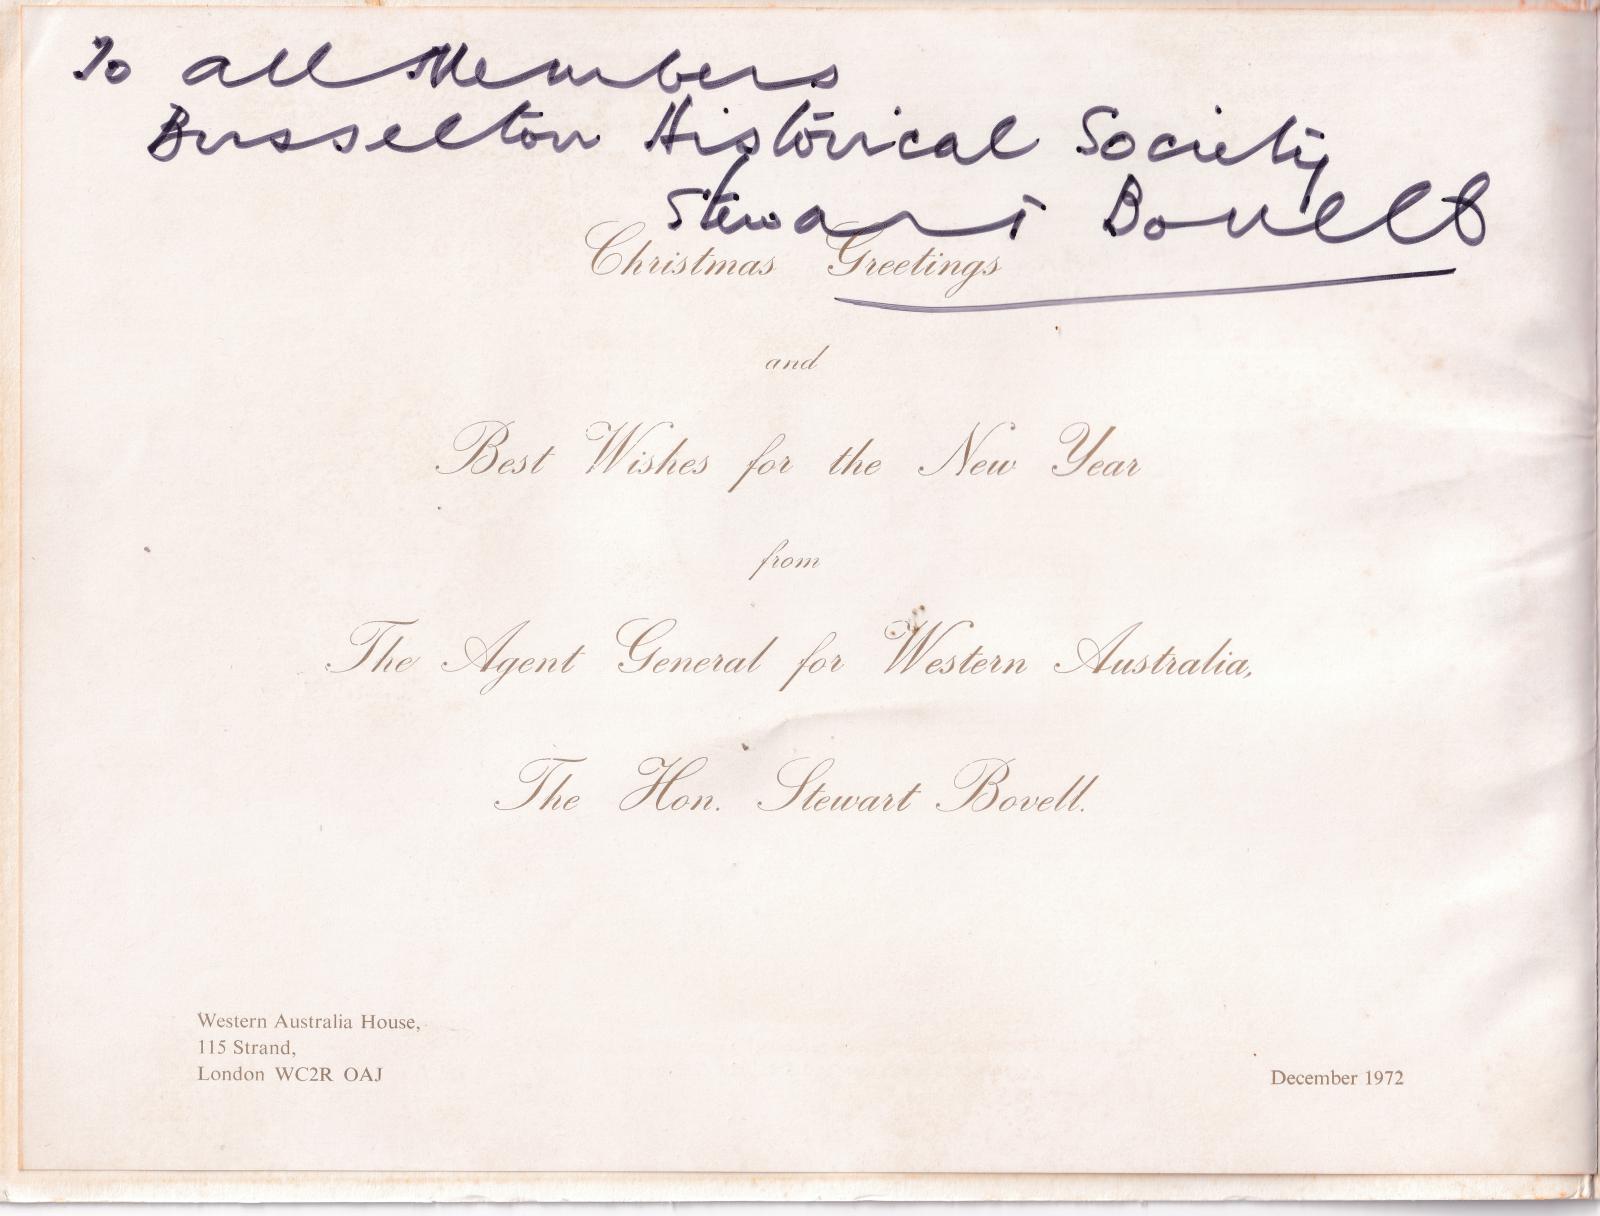 To all Members
Busselton Historical Society
Stewart Bovell
Christmas Greetings
and
Best Wishes for the New Year
from
The Agent General for Western Australia,
The Hon. Stewart Bovell.
Western Australia House,
115 Strand,
London WC2R OAJ
December 1972